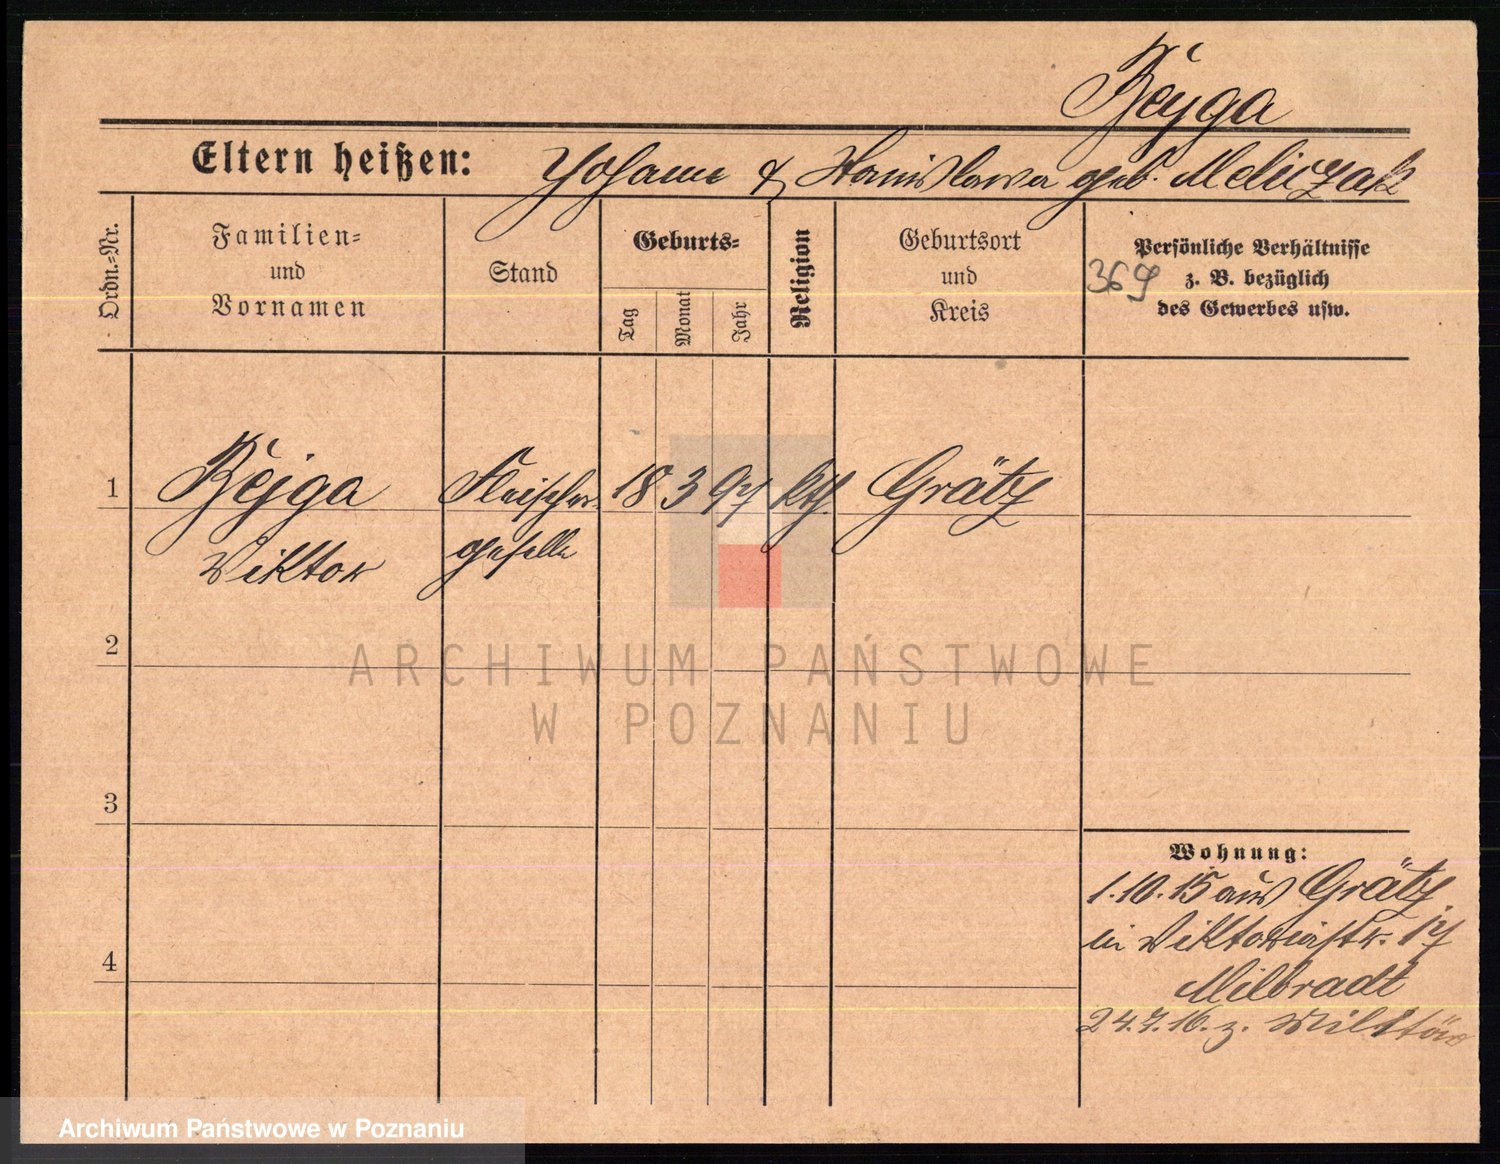 Bejga
Eltern heißen: Johann & Stanislawa geb. Meliczak
Ordn.-Nr.
Familien-
und
Vornamen
Stand
Geburts-
Tag
Monat
Jahr
Religion
Geburtsort
und
Kreis
Persönliche Verhältnisse
z. B. bezüglich
des Gewerbes usw.
369
1
Bejga
Viktor
Fleischer-
geselle
18 3 97
kth.
Grätz
2
3
4
Wohnung:
1.10.15 aus Grätz
in Viktoriastr. 17
Milbradt
24.7.16. z. Militär
ARCHIWUM PAŃSTWOWE
W POZNANIU
Archiwum Państwowe w Poznaniu